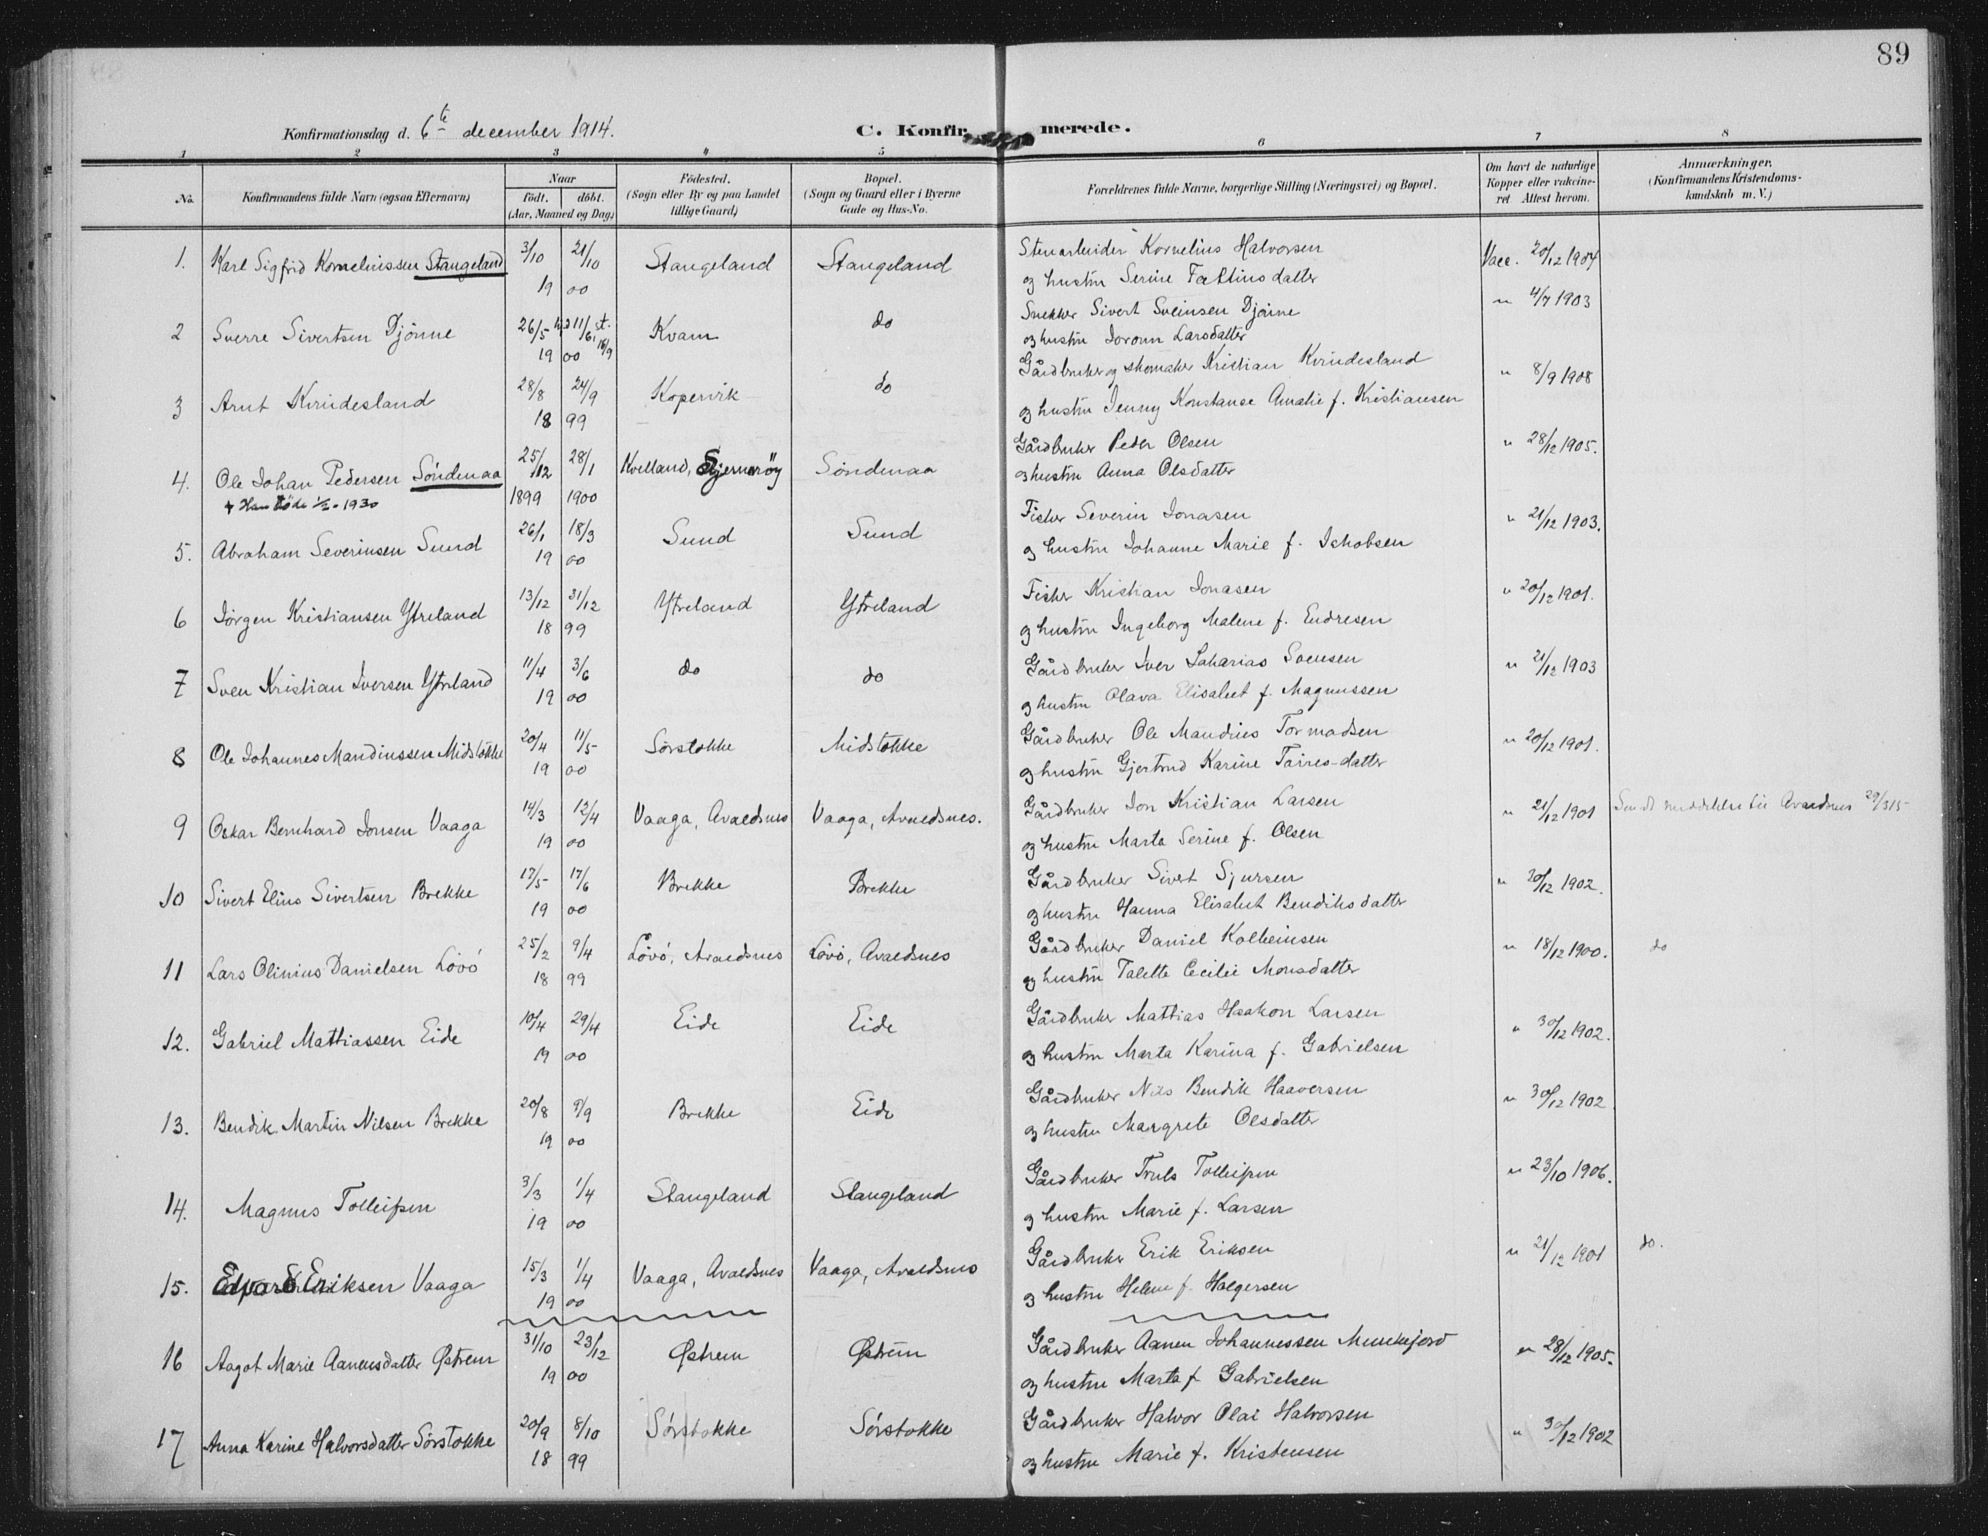 89
Konfirmationsdag d. 6te december 1914.
C. Konfirmerede.
1 2 3 4 5 6 7 8
No. Konfirmandens fulde Navn (ogsaa Efternavn) Naar født. døbt. (Aar, Maaned og Dag) Fødested. (Sogn eller By og paa Landet tillige Gaard) Bopæl. (Sogn og Gaard eller i Byerne Gade og Hus-No. Forældrenes fulde Navne, borgerlige Stilling (Næringsvei) og Bopæl. Om havt de naturlige Kopper eller vakcineret Attest herom. Anmærkninger. (Konfirmandens Kristendomskundskab m. V.)
1. Karl Sigfrid Korneliussen Stangeland 3/10 21/10 Stangeland Stangeland Stenarbeider Kornelius Halvorsen Vacc. 20/12 1904
19 00 og hustru Serine Faltinsdatter
2 Sverre Sivertsen Djönne 26/5 hj 11/6, st. 16/9 Kvam do Snekker Sivert Sveinsen Djönne " 4/7 1903
19 00 og hustru Joronn Larsdatter
3 Arnt Kvindesland 28/8 24/9 Kopervik do Gårdbruker og skomaker Kristian Kvindesland " 8/9 1908
18 99 og hustru Jenny Konstanse Amalie f. Kristiansen
4. Ole Johan Pedersen Söndenaa 25/12 28/1 Kvelland, Sjernerøy Söndenaa Gårdbruker Peder Olsen " 28/12 1905.
1899 1900 og hustru Anna Olsdatter
5. Abraham Severinsen Sund 26/1 18/3 Sund Sund Fisker Severin Jonasen " 21/12 1903.
19 00 og hustru Johanne Marie f. Jakobsen
6 Jörgen Kristiansen Ytreland 13/12 31/12 Ytreland Ytreland Fisker Kristian Jonasen " 20/12 1901.
18 99 og hustru Ingeborg Malene f. Endresen
7 Sven Kristian Iversen Ytreland 11/4 3/6 do do Gårdbruker Iver Sakarias Svensen " 21/12 1903
19 00 og hustru Olava Elisabet f. Magnussen
8 Ole Johannes Mandiussen Midstokke 20/4 11/5 Sørstokke Midstokke Gårdbruker Ole Mandius Tormodsen " 20/12 1901.
19 00 og hustru Gjertrud Karine datter
9 Oskar Bernhard Jonsen Vaaga 14/3 12/4 Vaaga, Avaldsnes Vaaga, Avaldsnes. Gårdbruker Jon Kristian Larsen " 21/12 1901 Sendt meddelelse til Avaldsnes 29/3 15
19 00 og hustru Marta Serine f. Olsen
10 Sivert Elius Sivertsen Brekke 17/5 17/6 Brekke Brekke Gårdbruker Sivert Sjursen " 30/12 1902.
19 00 og hustru Hanna Elisabet Bendiksdatter
11 Lars Olinius Danielsen Lövö 25/2 9/4 Lövö, Avaldsnes Lövö, Avaldsnes Gårdbruker Daniel Kolbeinsen " 18/12 1900. do
18 99 og hustru Talette Cecilie Monsdatter
12. Gabriel Mattiassen Eide 10/4 29/4 Eide Eide Gårdbruker Mattias Haakon Larsen " 30/12 1902.
19 00 og hustru Marta Karina f. Gabrielsen
13. Bendik Martin Nilsen Brekke 20/8 9/9 Brekke Eide Gårdbruker Nils Bendik Haaversen " 30/12 1902
19 00 og hustru Margrete Olsdatter
14. Magnus Tolleifsen 3/3 1/4 Stangeland Stangeland Gårdbruker Truls Tolleifsen " 23/10 1906.
19 00 og hustru Marie f. Larsen
15. Eriksen Vaaga 15/3 1/4 Vaaga, Avaldsnes Vaaga, Avaldsnes Gårdbruker Erik Eriksen " 21/12 1901 do.
19 00 og hustru Helene f. Holgersen
16 Aagot Marie Aanensdatter Østrem 31/10 23/12 Østrem Østrem Gårdbruker Aanen Johannessen Munkejord " 28/12 1905.
19 00 og hustru Marta f. Gabrielsen
17 Anna Karine Halvorsdatter Sörstokke 20/9 8/10 Sörstokke Sörstokke Gårdbruker Halvor Olai Halvorsen " 30/12 1902
18 99 og hustru Marie f. Kristensen